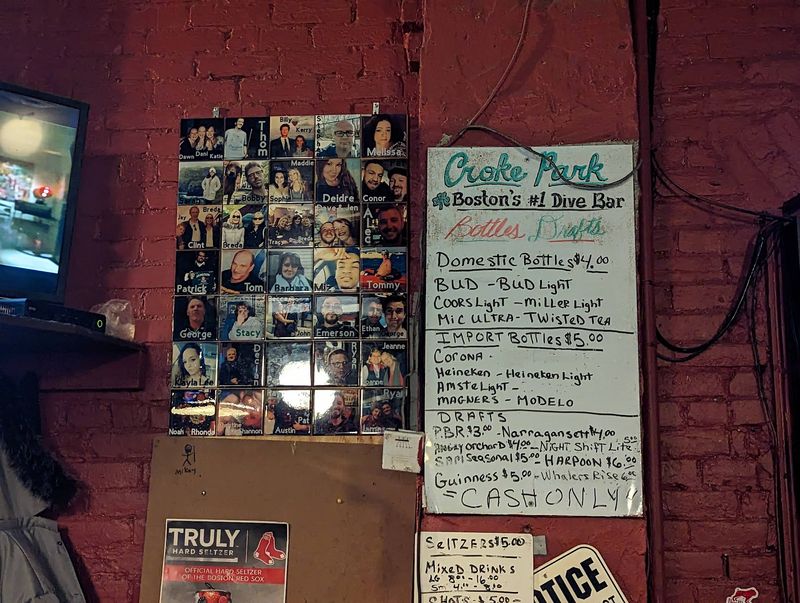 Dawn Dani Katie
Thom
Billy Kerry
Melissa
Maddie
Bobby
Sophia
Deidre
Conor
Clint
Breda
Dave & Jen
Patrick
Tom
Barbara
Tommy
George
Stacy
John
Emerson
Ethan
Kayla Lee
Declan
Ryan
Jeanne
Noah Rhonda
Shannon
Pat
Austin
Jamie
Mikey
TRULY
HARD SELTZER
OFFICIAL HARD SELTZER
OF THE BOSTON RED SOX
Croke Park
Boston's #1 Dive Bar
Bottles Drafts
Domestic Bottles $4.00
BUD - BUD Light
COORS Light - MiLLER Light
MiC ULTRA - TWisTED TEA
IMPORT Bottles $5.00
CORONA -
Heineken - Heineken Light
AMSTE Light -
MAGNERS - MODELO
DRAFTS
PBR $3.00 - Narragansett $4.00
ANGRY ORCHARD $4.00 - NIGHT SHIFT Lite 5.00
SAM Seasonal $5.00 HARPOON $6.00
Guinness $5.00 - Whalers Rise 6.00
= CASH ONLY!
SElTZERS $5.00
MixED DRINKS
LG 8.00 - 16.00
SHOTS - $5.00
NOTICE